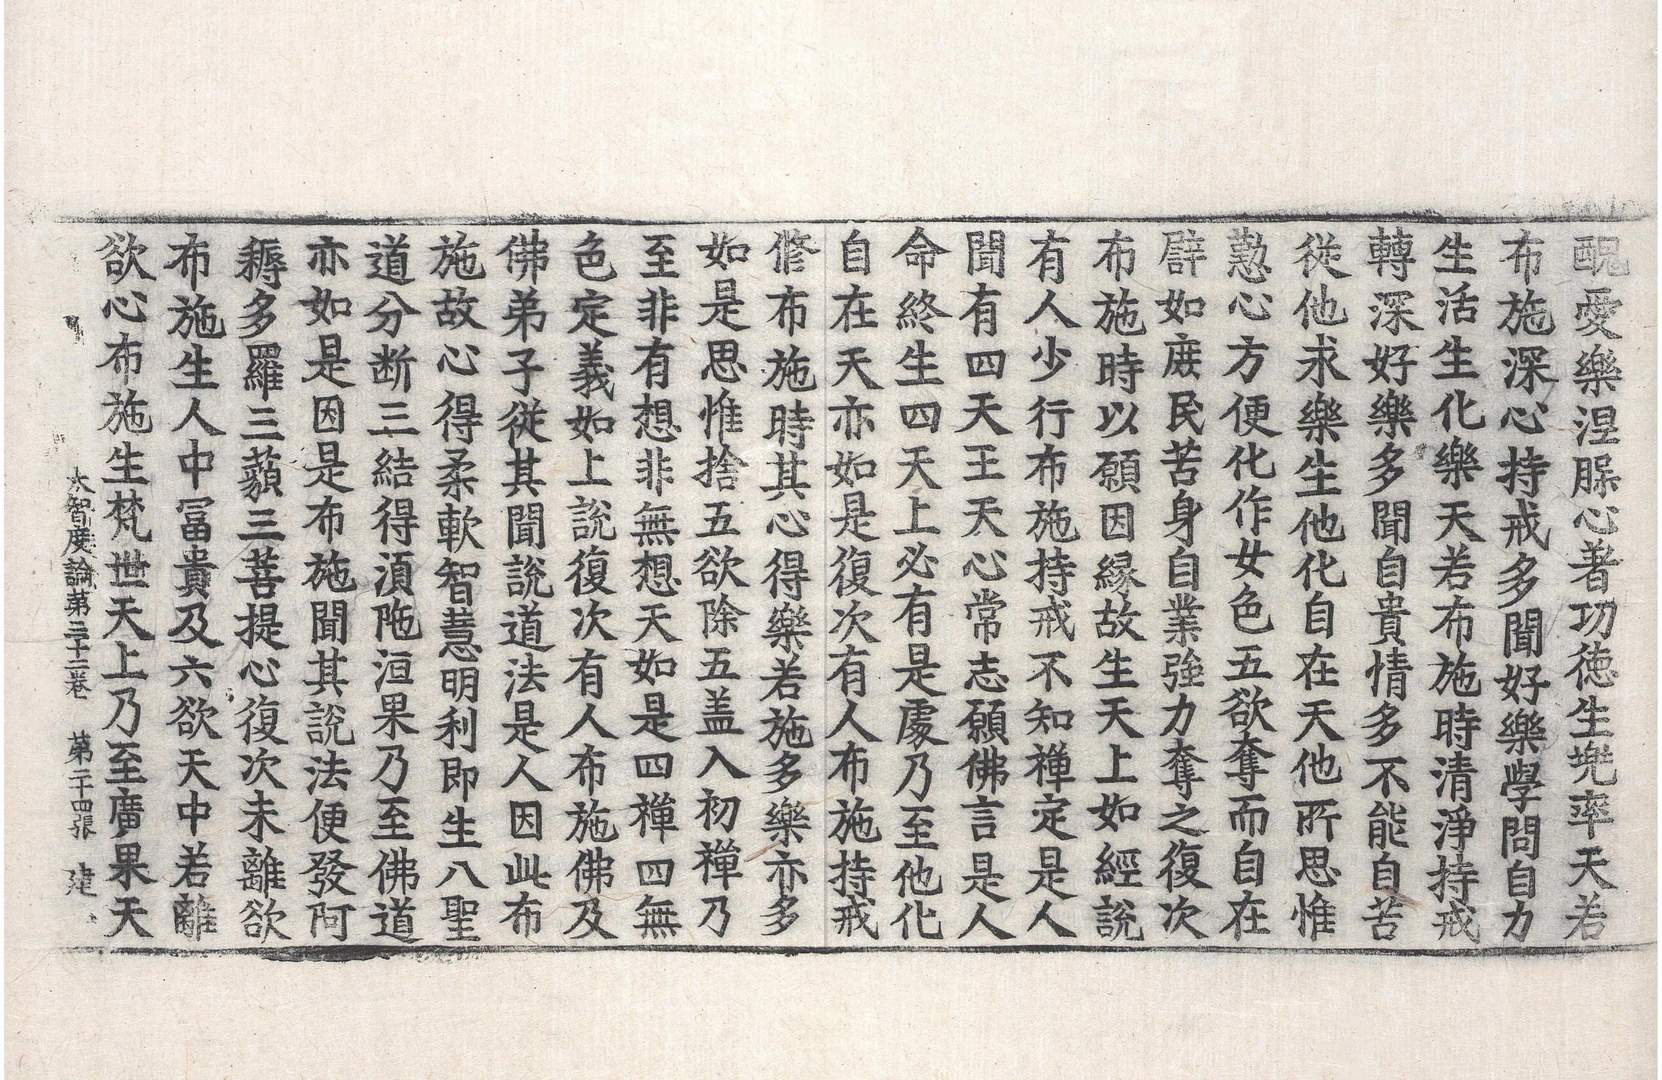 醜愛樂涅槃心著功徳生兠率天若
布施深心持戒多聞好樂學問自力
生活生化樂天若布施時清淨持戒
轉深好樂多聞自貴情多不能自苦
従他求樂生他化自在天他所思惟
懃心方便化作女色五欲奪而自在
辟如庻民苦身自業強力奪之復次
布施時以願因縁故生天上如經說
有人少行布施持戒不知禪定是人
聞有四天王天心常志願佛言是人
命終生四天上必有是處乃至他化
自在天亦如是復次有人布施持戒
脩布施時其心得樂若施多樂亦多
如是思惟捨五欲除五盖入初禪乃
至非有想非無想天如是四禪四無
色定義如上說復次有人布施佛及
佛弟子従其聞說道法是人因此布
施故心得柔軟智慧明利即生八聖
道分断三結得湏陁洹果乃至佛道
亦如是因是布施聞其說法便發阿
耨多羅三藐三菩提心復次未離欲
布施生人中冨貴及六欲天中若離
欲心布施生梵世天上乃至廣果天
大智度論第三十三卷 第二十四張 建